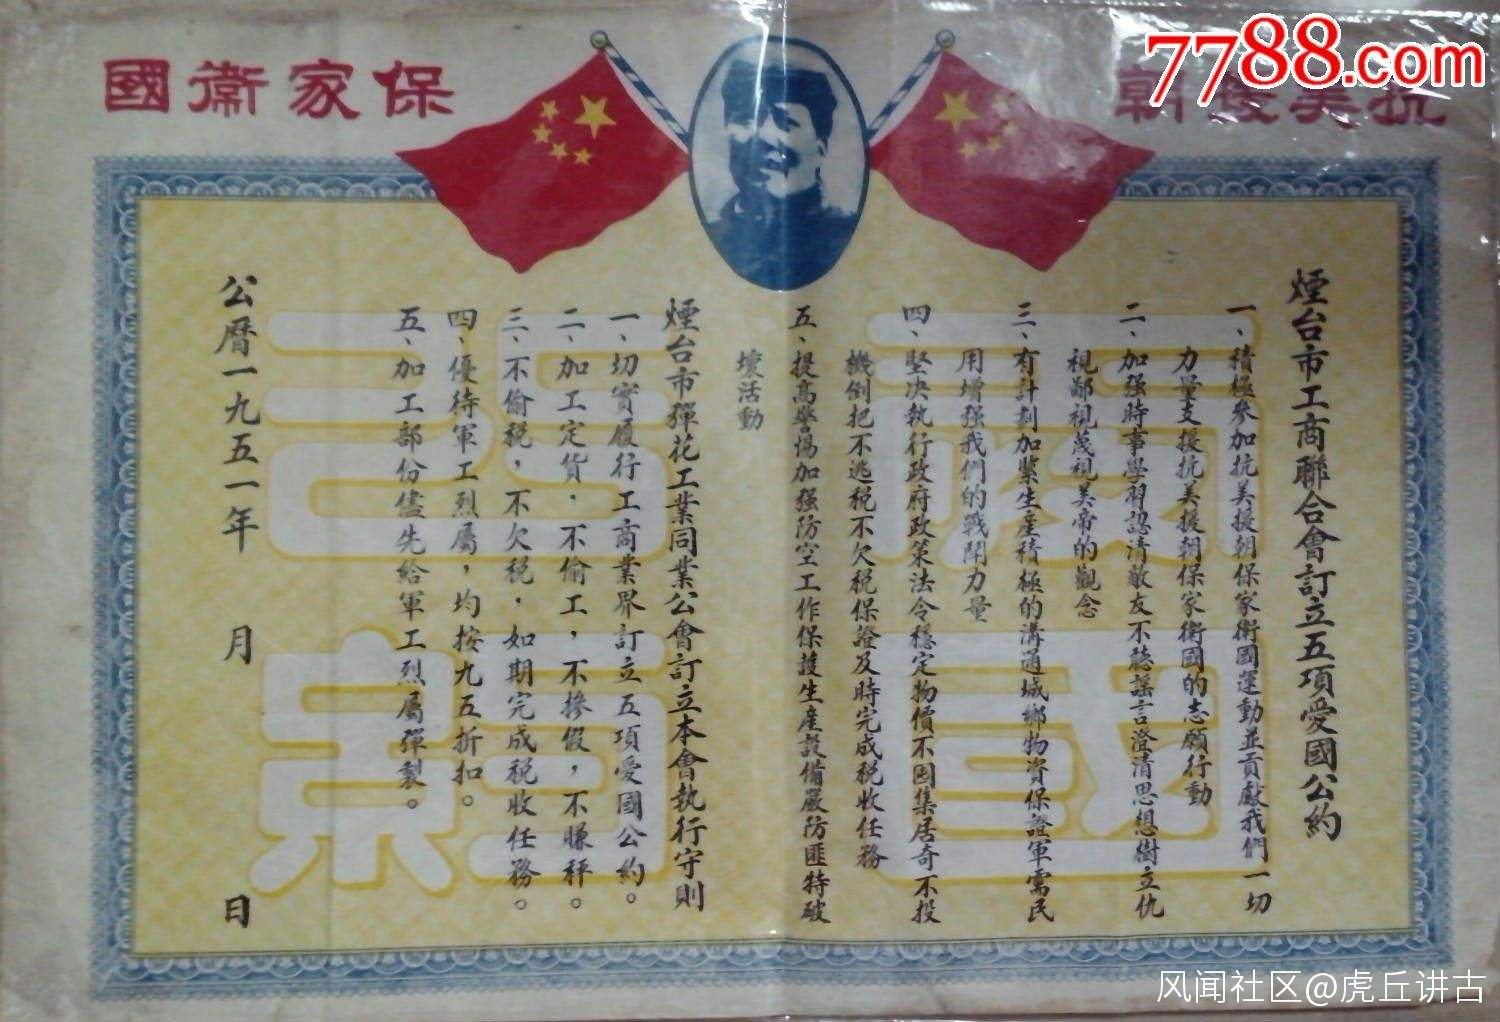 7788.com
抗美援朝
保家衛國
煙台市工商聯合會訂立五項愛國公約
一、積極參加抗美援朝保家衛國運動並貢獻我們一切
力量支援抗美援朝保家衛國的志願行動
二、加强時事學習認清敵友不聽謠言澄清思想樹立仇
視鄙視蔑視美帝的觀念
三、有計劃加緊生產積極的溝通城鄉物資保證軍需民
用增强我們的戰鬥力量
四、堅决執行政府政策法令穩定物價不囤集居奇不投
機倒把不逃税不欠税保證及時完成税收任務
五、提高警惕加强防空工作保護生產設備嚴防匪特破
壞活動
煙台市彈花工業同業公會訂立本會執行守則
一、切實履行工商業界訂立五項愛國公約。
二、加工定貨．不偷工，不摻假，不賺秤。
三、不偷税，不欠税，如期完成税收任務。
四、優待軍工烈屬，均按九五折扣。
五、加工部份儘先給軍工烈屬彈製。
公曆一九五一年　月　日
风闻社区@虎丘讲古